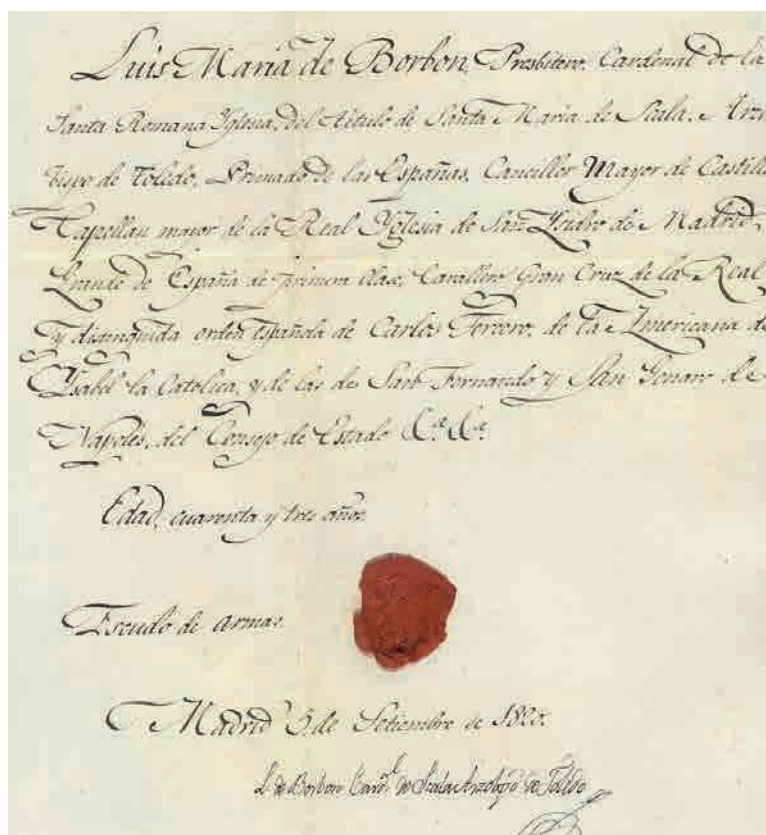 Luis Maria de Borbon, Presbitero Cardenal de la
Santa Romana Yglesia, del titulo de Santa Maria de Scala, Arzo
bispo de Toledo, Primado de las Españas, Canciller Mayor de Castilla
Capellan mayor de la Real Yglesia de San Ysidro de Madrid,
Grande de España de primera clase, Cavallero Gran Cruz de la Real
y distinguida orden Española de Carlos Tercero, de la Americana de
Ysabel la Catolica, y de las de San Fernando y San Genaro de
Napoles, del Consejo de Estado &.ª &.ª
Edad, cuarenta y tres años.
Escudo de armas.
Madrid 5 de Setiembre de 1820.
L. de Borbon Card.l de Scala Arzobpo de Toledo